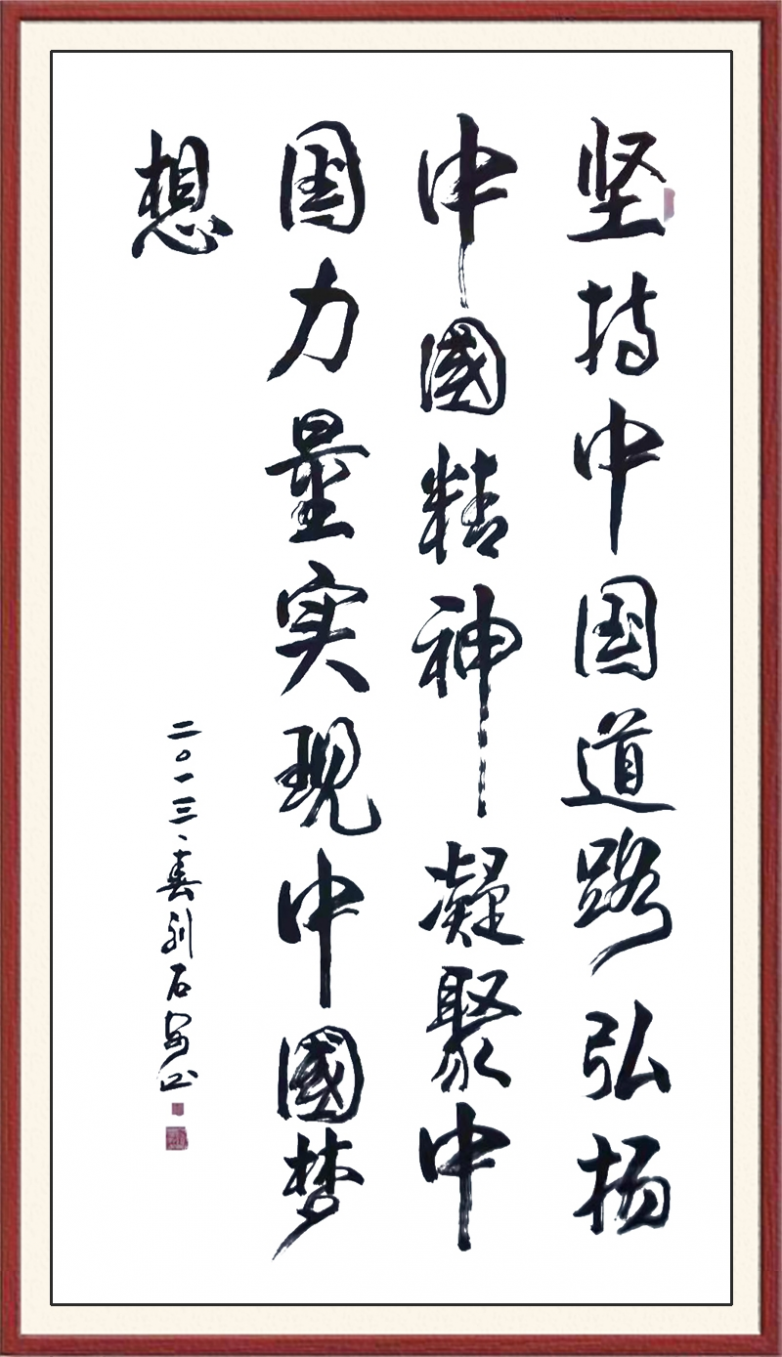 坚持中国道路弘扬
中國精神凝聚中
国力量实现中國梦
想
二〇一三、春刘石安书